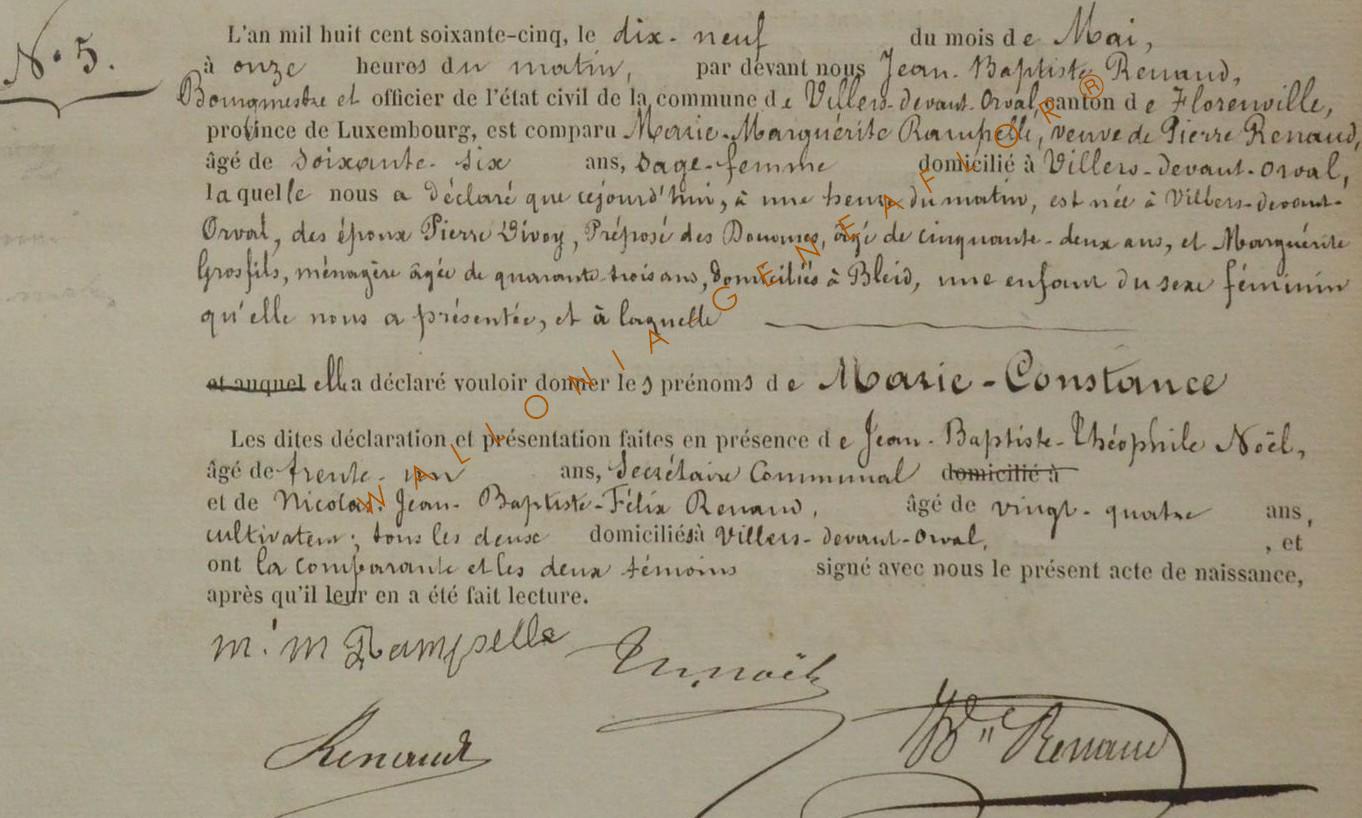 N.º 5.
L'an mil huit cent soixante-cinq, le dix-neuf du mois de Mai,
à onze heures du matin, par devant nous Jean-Baptiste Renaud,
Bourgmestre et officier de l'état civil de la commune de Villers-devant-Orval, canton de Florenville,
province de Luxembourg, est comparu Marie-Marguérite Rampelle, veuve de Pierre Renaud,
âgé de soixante-six ans, sage-femme domicilié à Villers-devant-Orval,
laquelle nous a déclaré que cejourd'hui, à une heure du matin, est née à Villers-devant-
Orval, des époux Pierre Givoy, Préposé des Douanes, âgé de cinquante-deux ans, et Marguérite
Grosfils, ménagère âgée de quarante-trois ans, domiciliés à Bleid, une enfant du sexe féminin
qu'elle nous a présentée, et à laquelle
et auquel elle a déclaré vouloir donner les prénoms de Marie-Constance
Les dites déclaration et présentation faites en présence de Jean-Baptiste-Théophile Noël,
âgé de trente-un ans, Secrétaire Communal domicilié à
et de Nicolas-Jean-Baptiste-Félix Renaud, âgé de vingt-quatre ans,
cultivateur; tous les deux domiciliés à Villers-devant-Orval, , et
ont la comparante et les deux témoins signé avec nous le présent acte de naissance,
après qu'il leur en a été fait lecture.
m. m Rampelle
Noël
Renaud
Renaud
WALLONIA GENEAFLOR®